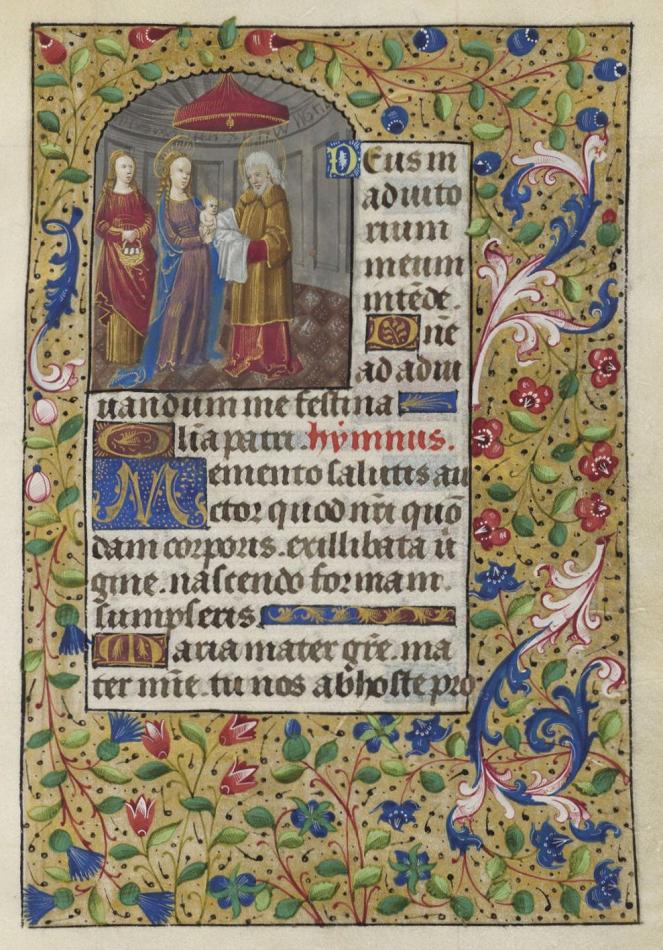 Deus in
adiuto
rium
meum
intēde.
Dne
ad adiu
uandum me festina
Glia patri. hymnus.
Memento salutis au
ctor quod nr̄i quō
dam corporis. ex illibata ū
gine. nascendo formam.
sumpseris.
Maria mater gr̄e. ma
ter mīe. tu nos ab hoste pro